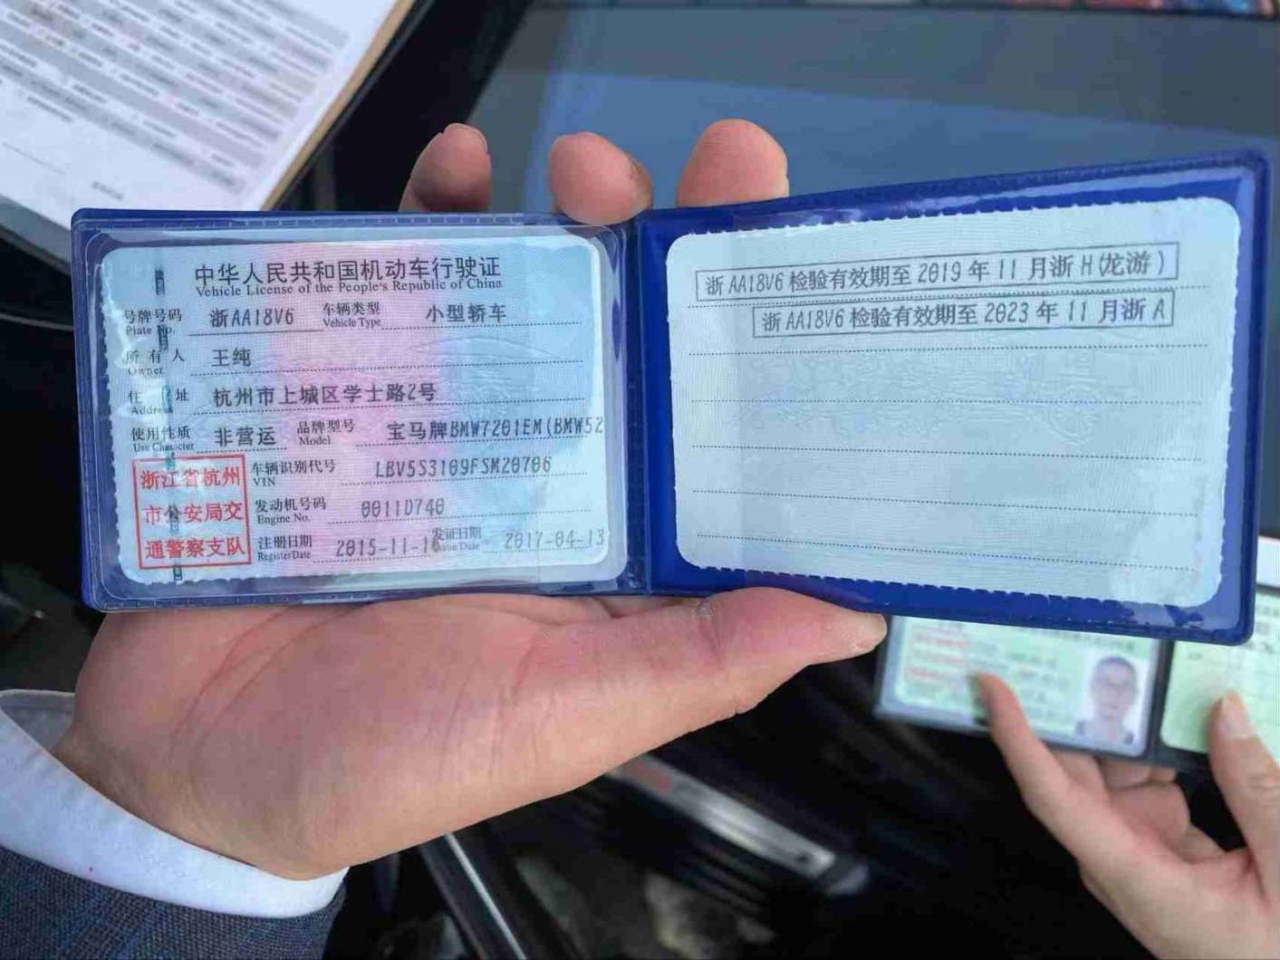 中华人民共和国机动车行驶证
Vehicle License of the People's Republic of China
号牌号码 浙AA18V6 车辆类型 小型轿车
Plate No. Vehicle Type
所有人 王纯
Owner
住 址 杭州市上城区学士路2号
Address
使用性质 非营运 品牌型号 宝马牌BMW7201EM(BMW52
Use Character Model
浙江省杭州
市公安局交
通警察支队
车辆识别代号 LBV5S3109FSM20706
VIN
发动机号码 0011D740
Engine No.
注册日期 2015-11-16 发证日期 2017-04-13
Register Date Issue Date
浙AA18V6检验有效期至2019年11月浙H(龙游)
浙AA18V6检验有效期至2023年11月浙A